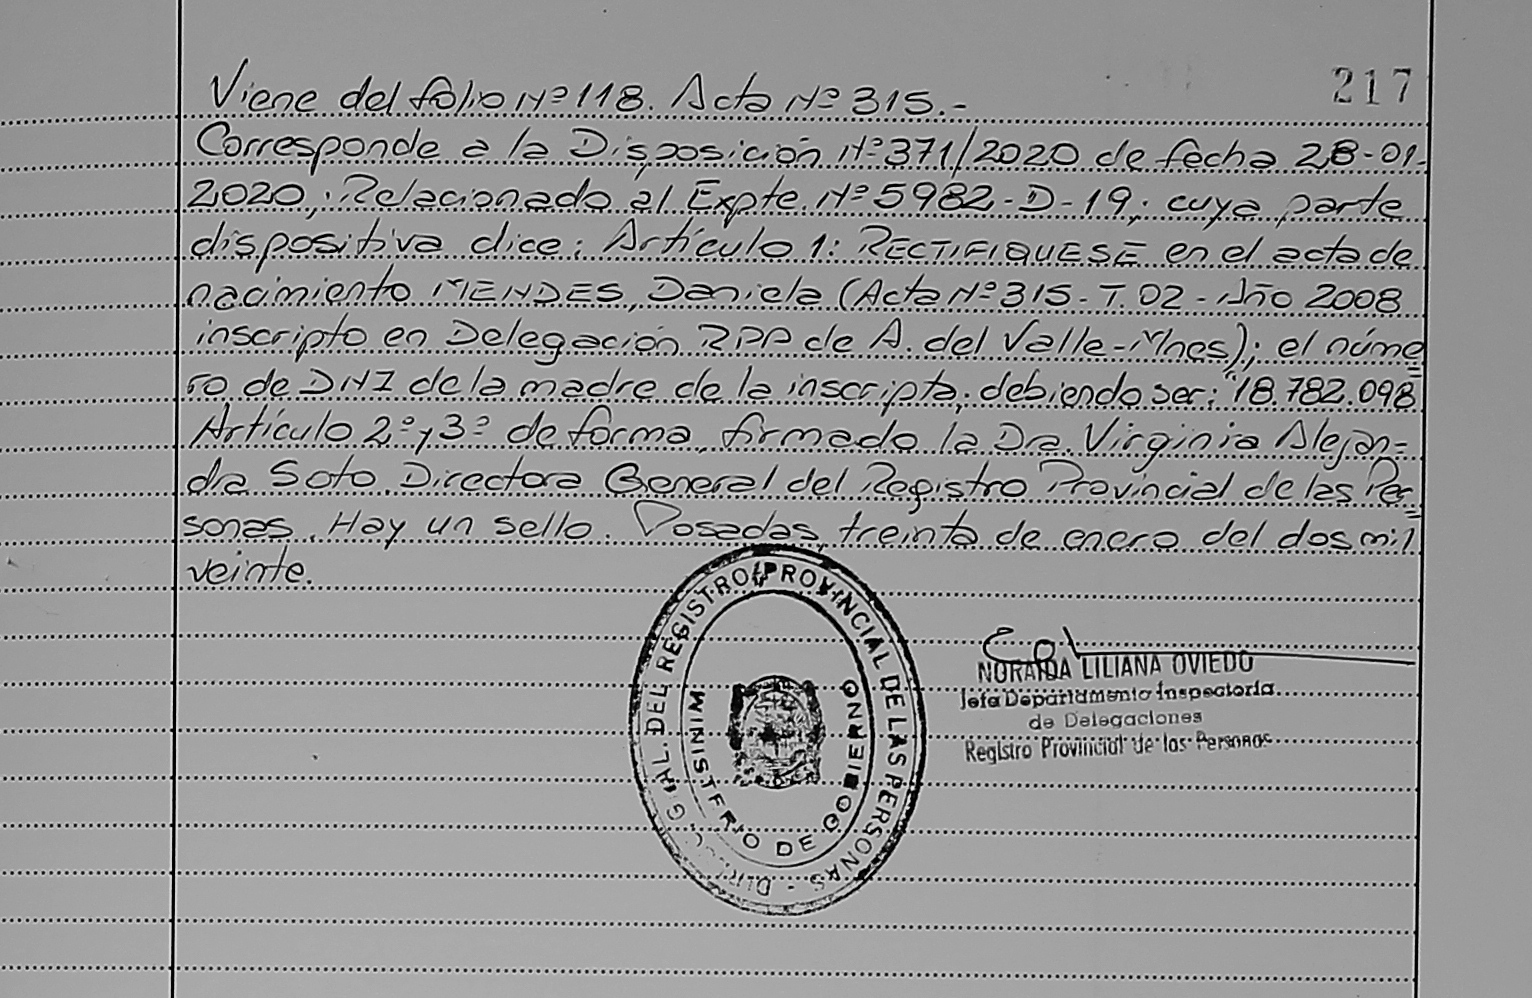 217
Viene del folio Nº 118. Acta Nº 315.-
Corresponde a la Disposición Nº 371/2020 de fecha 28-01-
2020, Relacionado al Expte. Nº 5982-D-19, cuya parte
dispositiva dice: Artículo 1: RECTIFIQUESE en el acta de
nacimiento MENDES, Daniela (Acta Nº 315-T.02-Año 2008
inscripto en Delegación RPP de A. del Valle-Mnes); el núme=
ro de DNI de la madre de la inscripta, debiendo ser: "18.782.098
Artículo 2º y 3º de forma, firmado la Dra. Virginia Alejan=
dra Soto. Directora General del Registro Provincial de las Per=
sonas. Hay un sello. Posadas, treinta de enero del dos mil
veinte.
DIRECC. GRAL. DEL REGISTRO PROVINCIAL DE LAS PERSONAS.-
MINISTERIO DE GOBIERNO
NORAIDA LILIANA OVIEDO
Jefa Departamento Inspectoria
de Delegaciones
Registro Provincial de las Personas